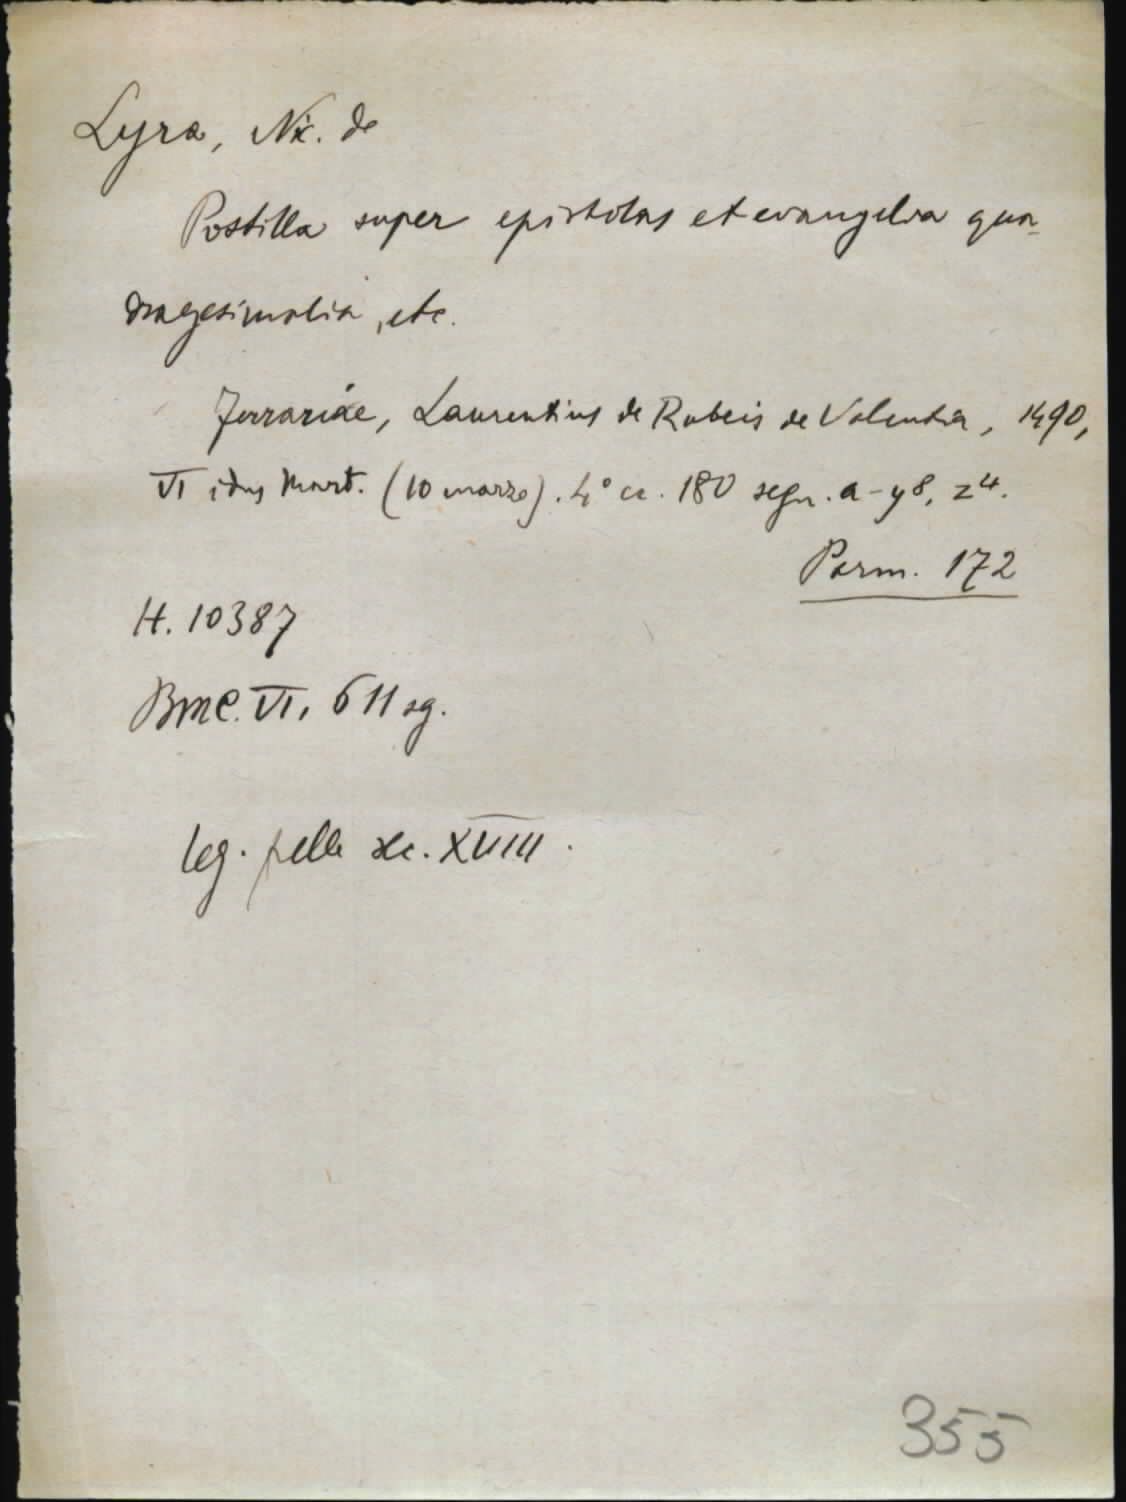 Lyra, Nic. de
Postilla super epistolas et evangelia qua-
dragesimalia, etc.
Ferrariae, Laurentius de Rubeis de Valentia, 1490,
VI idus Mart. (10 marzo). 4° cc. 180 segn. a-y8, z4.
Parm. 172
H. 10387
BMC. VI, 611 sg.
leg. pelle sec. XVIII.
355